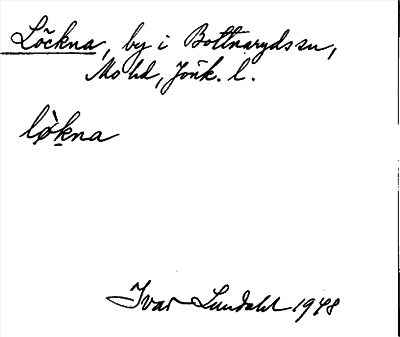 Löckna, by i Bottnarydssn,
Mo hd, Jönk. l.
lø̀kna
Ivar Lundahl 1948